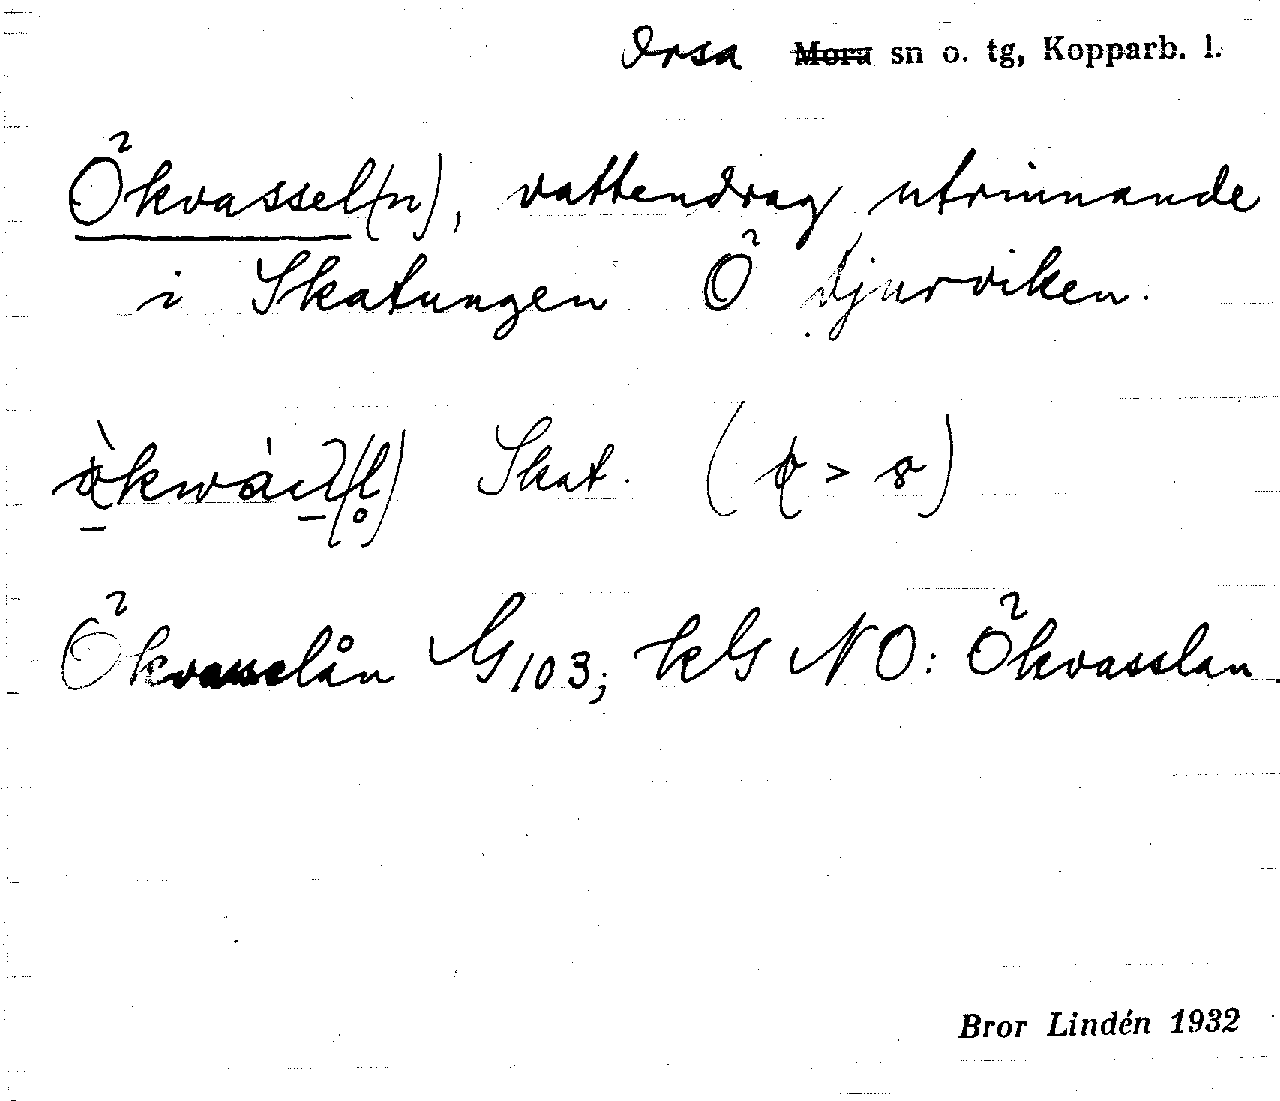 Orsa Mora sn o. tg, Kopparb. l.
Ökvassel(n), vattendrag utrinnande
i Skatungen Ö djurviken.
Skat. ( > )
Ökvasselån G103; kG NO: Ökvasslan
Bror Lindén 1932